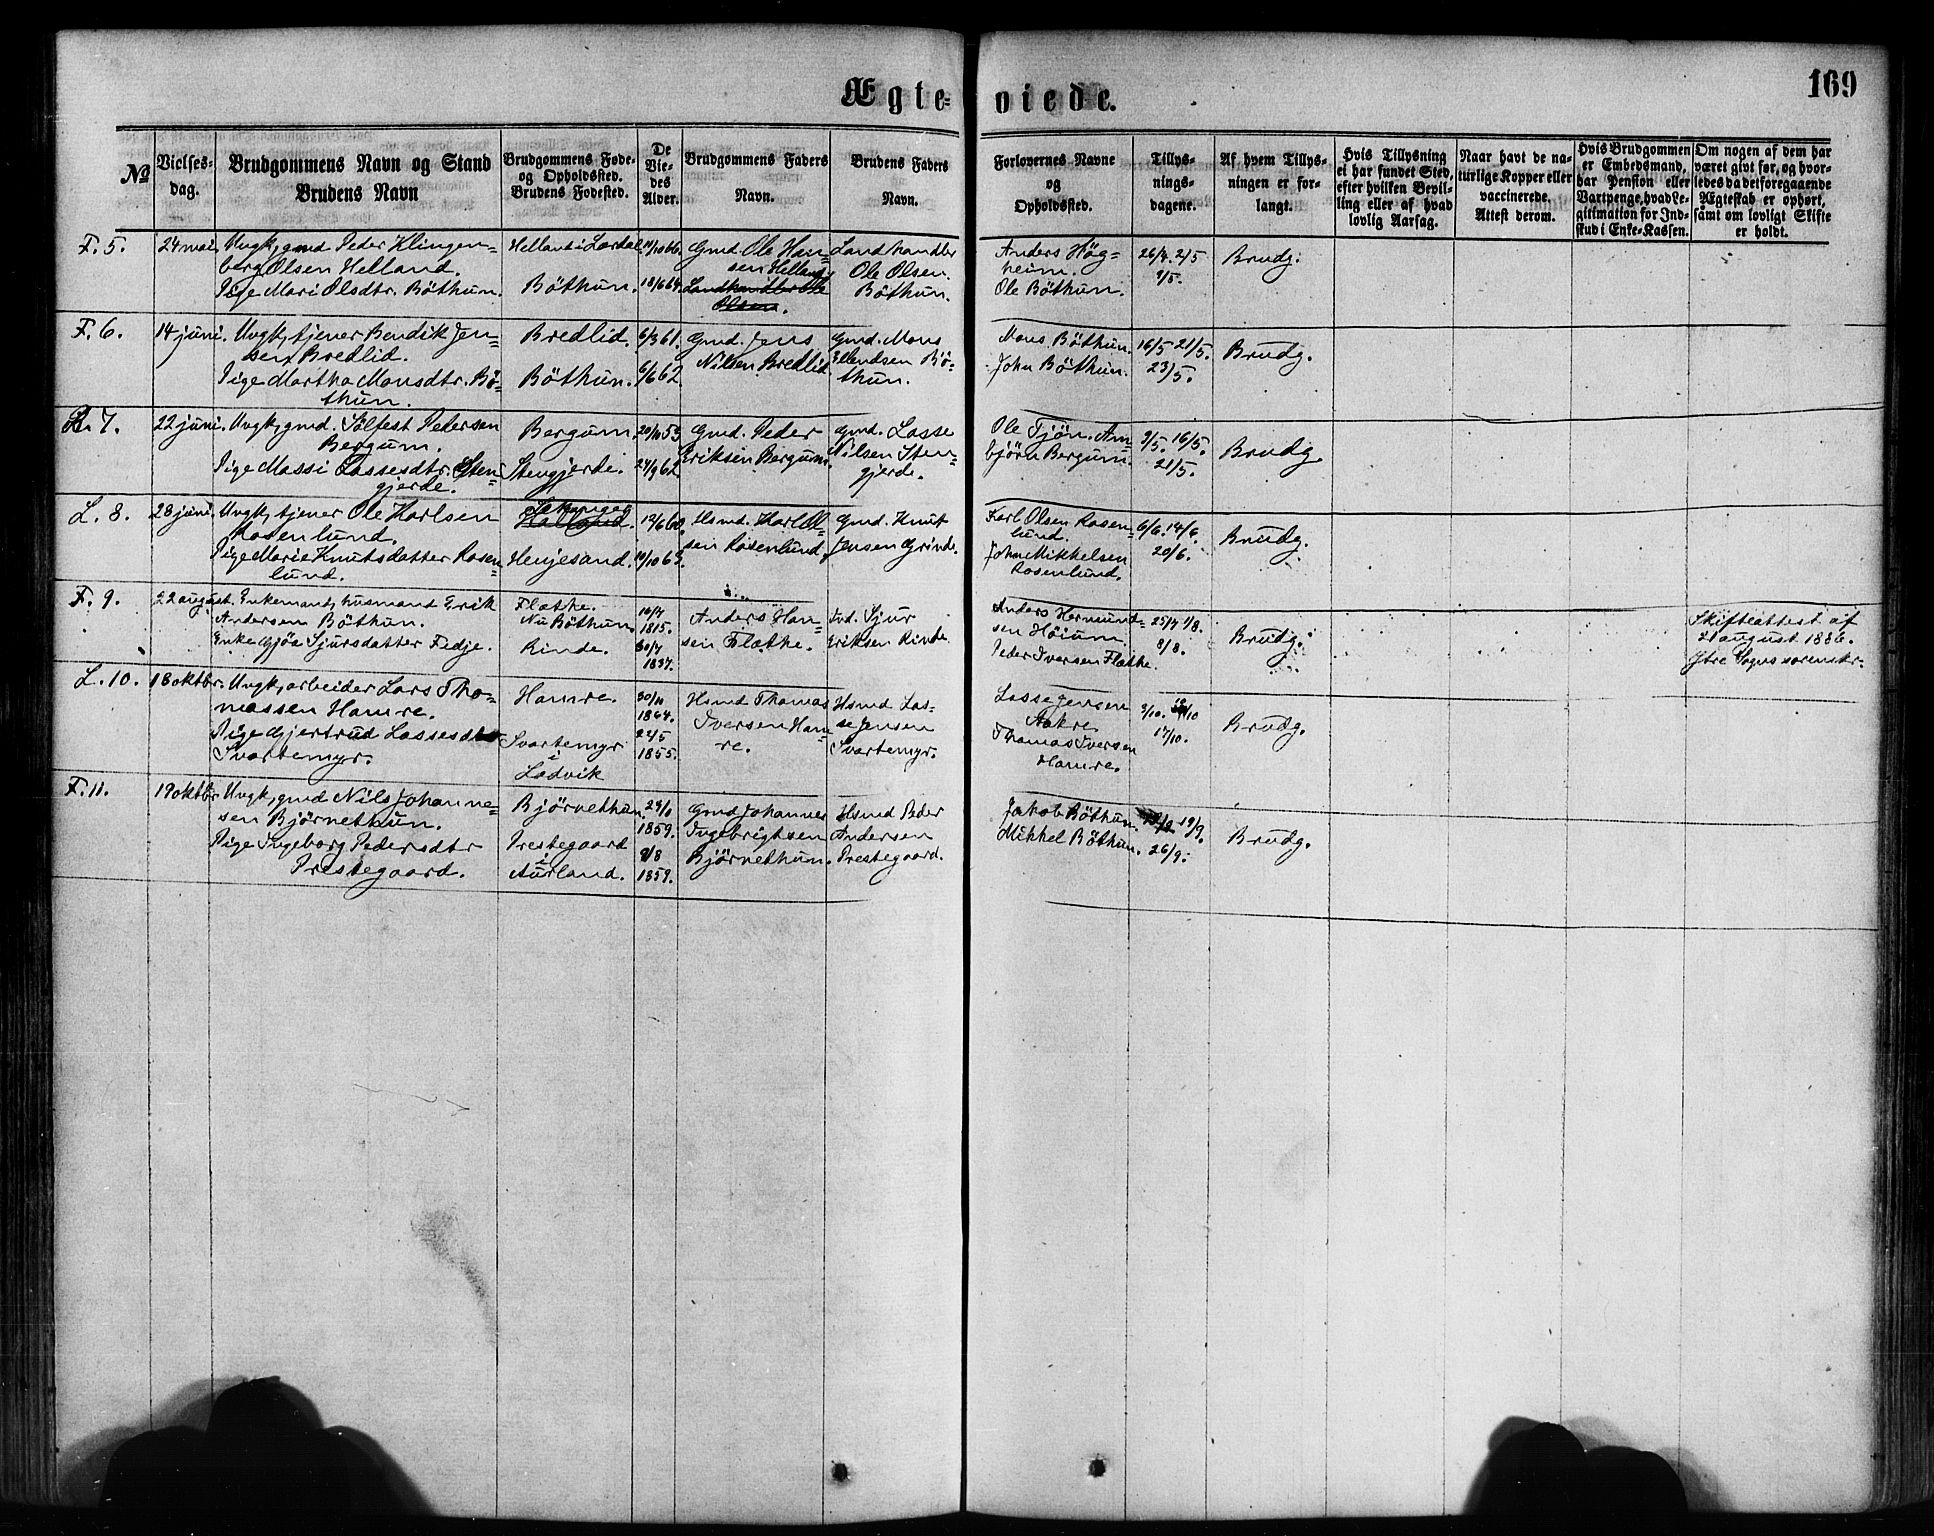 Ægte-viede.
169
№
Vielses-
dag.
Brudgommens Navn og Stand
Brudens Navn
Brudgommens Føde-
og Opholdssted.
Brudens Fødested.
De
Vie-
des
Alder.
Brudgommens Faders
Navn.
Brudens Faders
Navn.
Forlovernes Navne
og
Opholdssted.
Tillys-
nings-
dagene.
Af hvem Tillys-
ningen er for-
langt.
Hvis Tillysning
ei har fundet Sted,
efter hvilken Bevil-
ling eller af hvad
lovlig Aarsag.
Naar havt de na-
turlige Kopper eller
vaccinerede.
Attest derom.
Hvis Brudgommen
er Embedsmand,
har Pension eller
Vartpenge, hvad Le-
gitimation for Ind-
skud i Enke-Kassen.
Om nogen af dem har
været givt før, og hvor-
ledes da det foregaaende
Ægteskab er ophørt,
samt om lovligt Skifte
er holdt.
F. 5.
24 mai.
Ungk, gmd Peder Klingen-
berg Olsen Helland.
Pige Mari Olsdtr. Böthun.
Helland i Lærdal
Böthun.
11/10 66.
18/6 64.
Gmd. Ole Han-
sen Helland
Landhandler Ole
Olsen.
Landhandler
Ole Olsen.
Böthun.
Anders Hög-
heim.
Ole Böthun.
26/4. 2/5
9/5.
Brudg.
F. 6.
14 juni.
Ungk, tjener Bendik Jen-
sen Bredlid.
Pige Martha Monsdtr. Bö-
thun.
Bredlid.
Böthun.
6/3 61.
6/6 62.
Gmd. Jens
Nilsen Bredlid
Gmd. Mons
Ellendsen Bö-
thun.
Mons Böthun.
John Böthun.
16/5 21/5.
23/5.
Brudg.
L. 7.
22 juni.
Ungk, gmd. Sölfest Pedersen
Bergum.
Pige Massi Lassesdtr. Sten-
gjerde.
Bergum.
Stengjerde.
20/10 53
24/9 62.
Gmd. Peder
Eriksen Bergum.
Gmd. Lasse
Nilsen Sten-
gjerde.
Ole Tjön. Am-
björn Bergum.
9/5. 16/5.
21/5.
Brudg.
L. 8.
28 juni.
Ungk, tjener Ole Karlsen
Rosenlund.
Pige Marie Knutsdatter Rosen-
lund.
Helland.
Henjesand.
19/6 60.
11/10 63.
Hsmd. Karl Ol-
sen Rosenlund.
Gmd. Knut
Jensen Grinde.
Karl Olsen Rosen-
lund.
John Mikkelsen
Rosenlund.
6/6. 14/6.
20/6.
Brudg.
F. 9.
22 august.
Enkemand, husmand Erik
Andersen Böthun.
Enke Gjöa Sjursdatter Fedje.
Flæthe.
Nu Böthun.
Rinde.
10/7
1815.
30/7
1837.
Anders Han-
sen Flæthe.
Ind. Sjur
Eriksen Rinde.
Anders Hermund-
sen Höium
Peder Iversen Flæthe.
25/7 1/8.
8/8.
Brudg.
Skifteattest af
21 august 1886.
Ytre Sogns sorenskr.
L. 10.
18 oktbr.
Ungk, arbeider Lars Tho-
massen Hamre.
Pige Gjertrud Lassesdtr
Svartemyr.
Hamre.
Svartemyr
i
Ladvik
30/11
1864.
24/5
1855.
Hsmd Thomas
Iversen Ham-
re.
Hsmd Las-
se Jensen
Svartemyr.
Lasse Jensen
Aakre
Thomas Iversen
Hamre.
3/10. 10/10
17/10.
Brudg.
F. 11.
19 oktbr
Ungk, gmd Nils Johanne-
sen Björnethun.
Pige Ingeborg Pedersdtr
Prestegaard.
Björnethun.
Prestegaard
i
Aurland.
1859.
9/8
1859.
Gmd Johannes
Ingebrigtsen
Björnethun.
Hsmd Peder
Andersen
Prestegaard.
Jakob Böthun.
Mikkel Böthun.
19/9.
26/9.
Brudg.